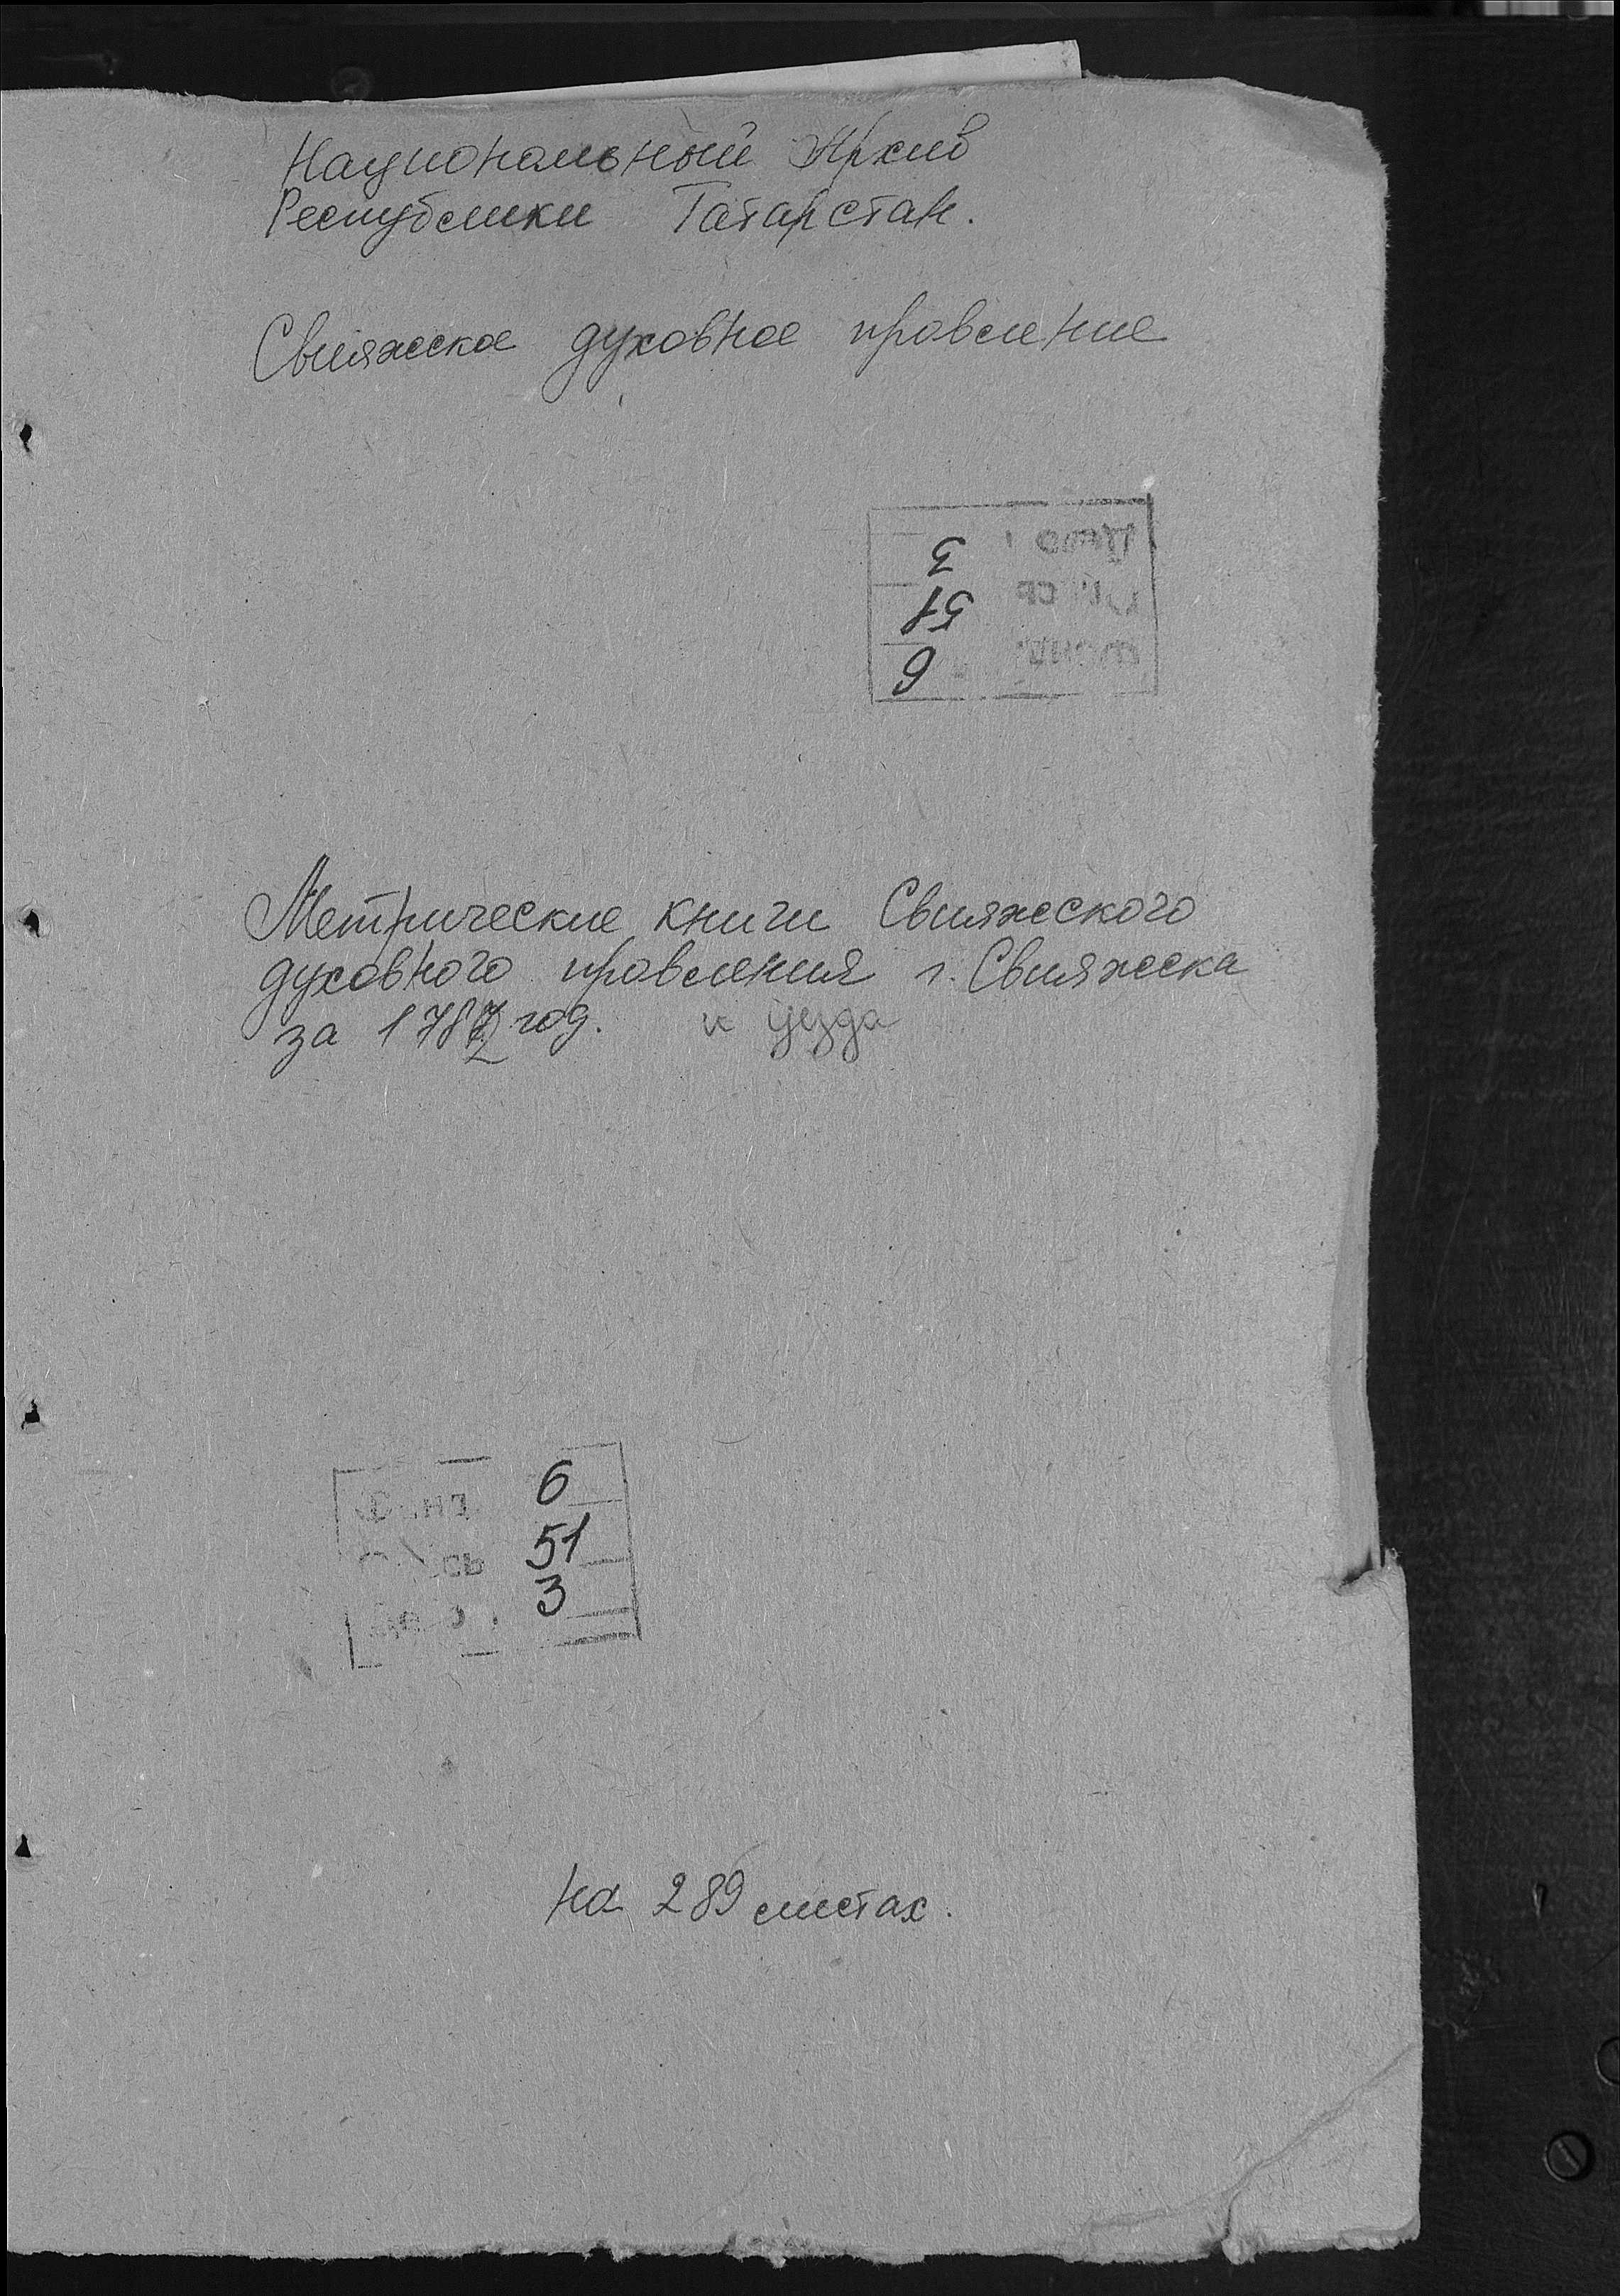 Национальный Архив
Республики Татарстан.
Свияжское духовное правление
3
51
6
Метрические книги Свияжского
духовного правления г. Свияжска
за 1782 год. и уезда
6
51
3
на 289 листах.